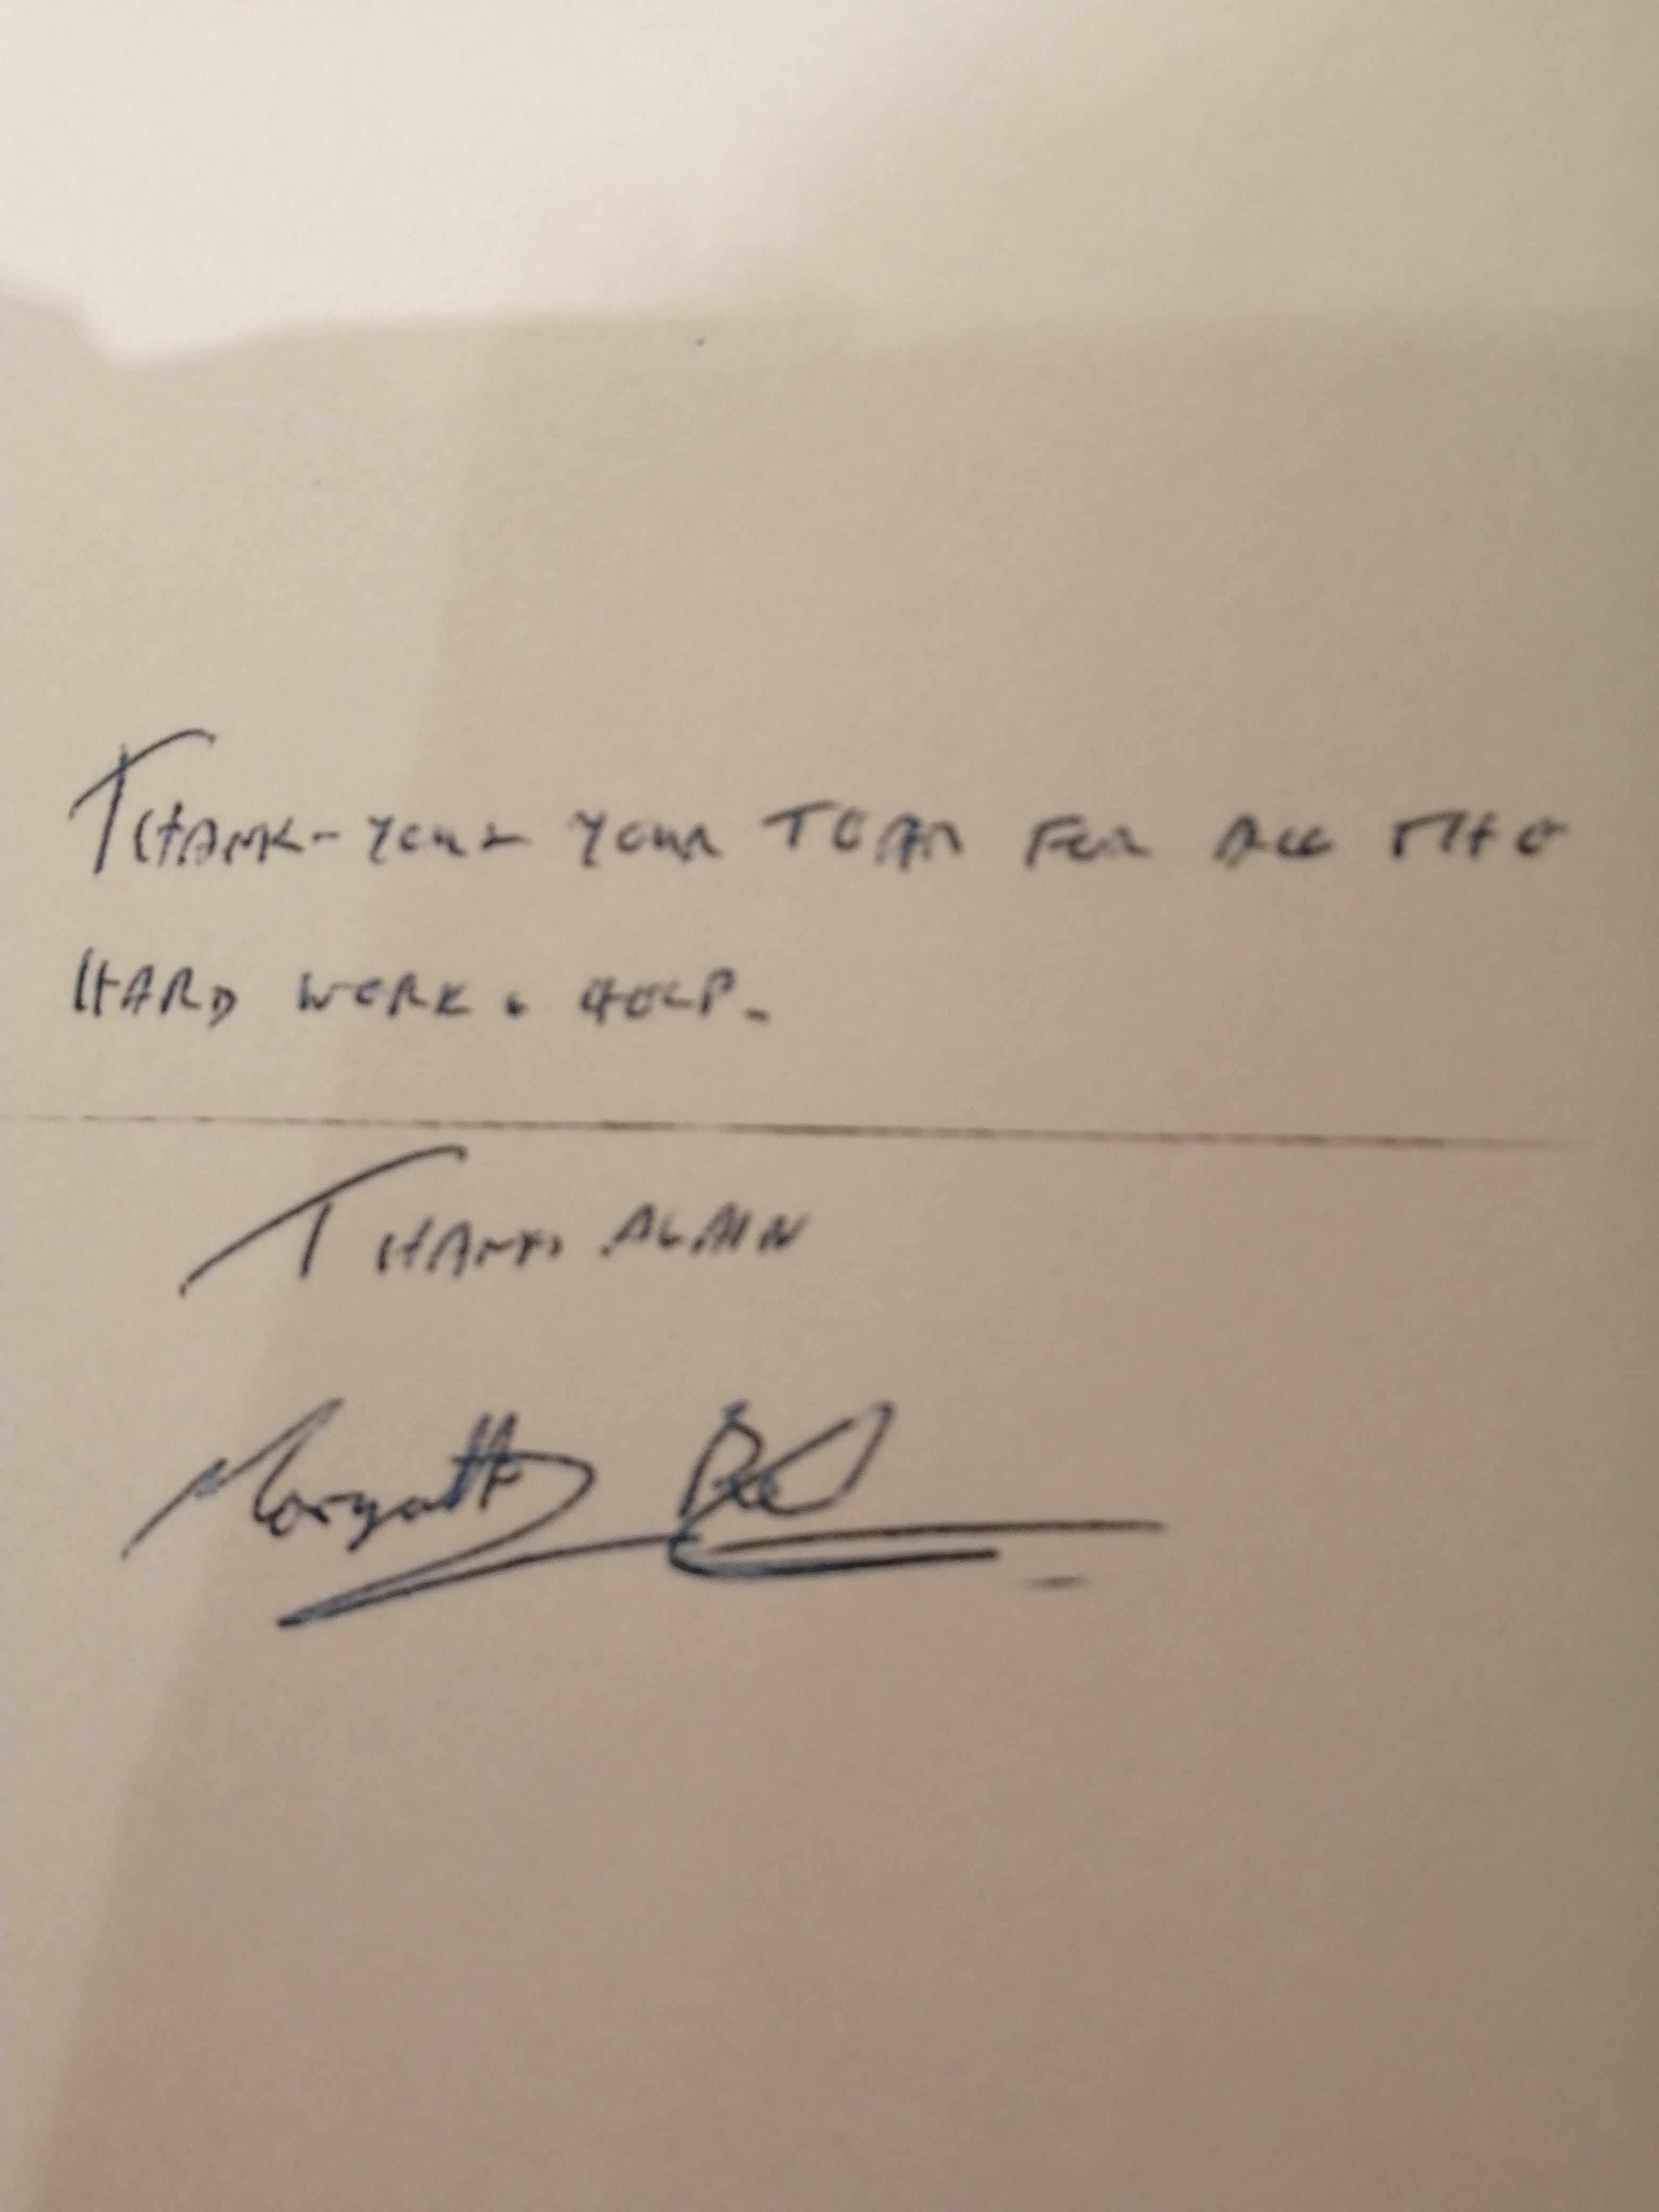 THANK-YOU & YOUR TEAM FOR ALL THE
HARD WORK & HELP.
THANKS AGAIN